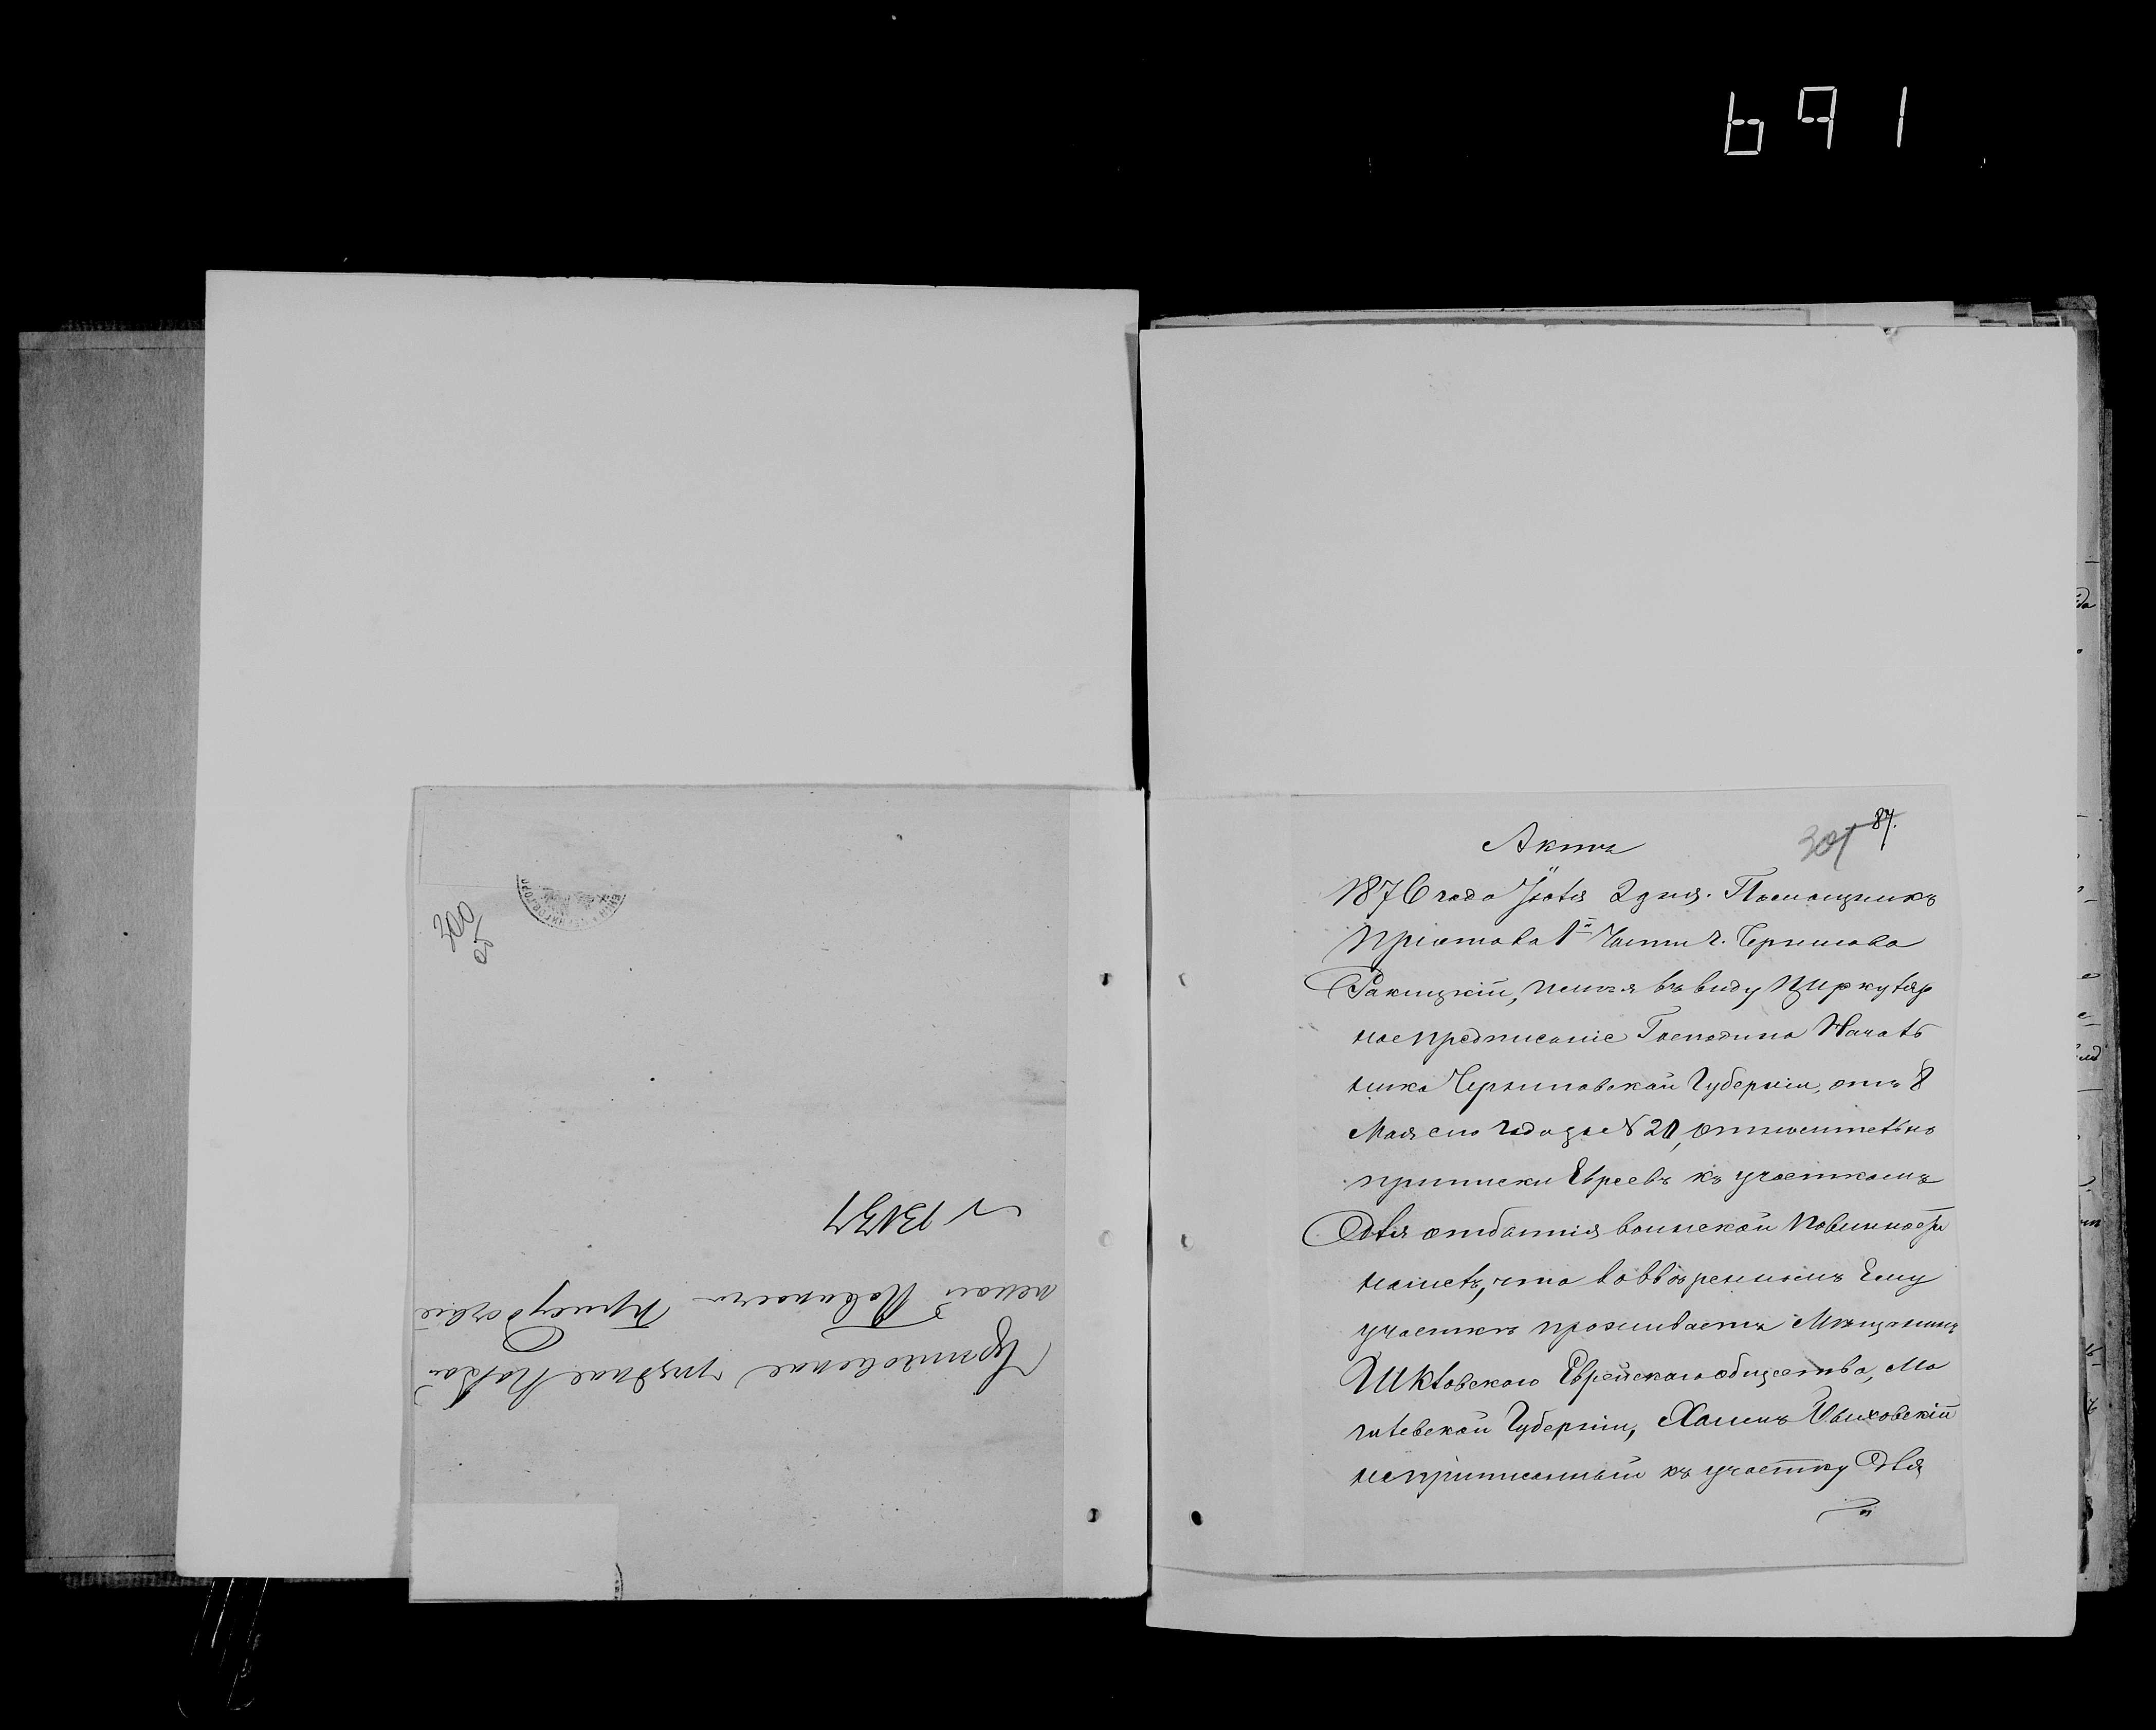 691
300
об
Черниговское уездное по Вой
нской Повинности Присудствіе
N 13157
87.
301
Актъ
1876 года Іюля 2 дня. Помощникъ
Пристава 1й Части г. Чернигова
Ракицкій, имѣя въ виду Циркуляр
ное предписаніе Господина Началь
ника Черниговской Губерніи, отъ 8
Мая сего года за № 20, относительно
приписки Евреевъ къ участкамъ
Для отбытія воинской повинности
нашелъ, что во ввѣренномъ Ему
участкѣ проживаетъ Мѣщанинъ
Шкловского Еврейскаго общества, Мо
гилевской Губерніи, Хаимъ Быховскій
неприписанный къ участку Для